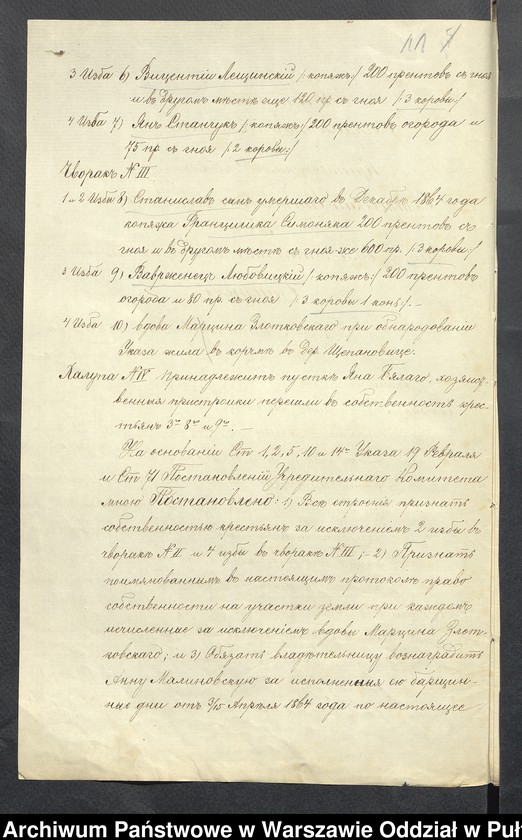 11 7
3 Изба 6) Вицентій Лещинскій /: копяжъ:/ 200 прентовъ съ гноя
и въ другомъ мѣстѣ еще 120 пр. съ гноя /: 3 коровы:/
4 Изба 7) Янъ Станчукъ /: копяжъ:/ 200 прентовъ огорода и
75 пр. съ гноя /: 2 коровы:/
Чворакъ N III
1 и 2 Изба 8) Станиславъ сынъ умершаго въ Декабрѣ 1864 года
копяжа Францишка Симоняка 200 прентовъ съ
гноя и въ другомъ мѣстѣ съ гноя же 600 пр. /: 3 коровы:/
3 Изба 9) Ваврженецъ Любовицкій /: копяжъ:/ 200 прентовъ
огорода и 80 пр. съ гноя /: 3 коровы 1 конь:/. —
4 Изба 10) вдова Марцина Злотковскаго при обнародованіи
Указа жила въ корчмѣ въ дер. Щепановице.
Халупа N IV принадлежитъ пусткѣ Яна Бялаго, хозяйст-
венныя пристройки перешли въ собственность крес-
тьянъ 3го 8го и 9го. —
На основаніи Ст 1, 2, 5, 10 и 14й Указа 19 Февраля
и Ст 71 Постановленій Учредительнаго Комитета
мною Постановлено: 1) Всѣ строенія признать
собственностью крестьянъ за исключеніемъ 2 избы въ
чворакѣ N II и 4 избы въ чворакѣ N III; – 2) Признать
поименованнымъ въ настоящимъ протоколѣ право
собственности на участки земли при каждомъ
исчисленные за исключеніемъ вдовы Марцина Злот-
ковскаго; и 3) Обязать владѣтельницу вознаградить
Анну Малиновскую за исполненныя ею барщин-
ные дни отъ 3/15 Апрѣля 1864 года по настоящее
Archiwum Państwowe w Warszawie Oddział w Puł